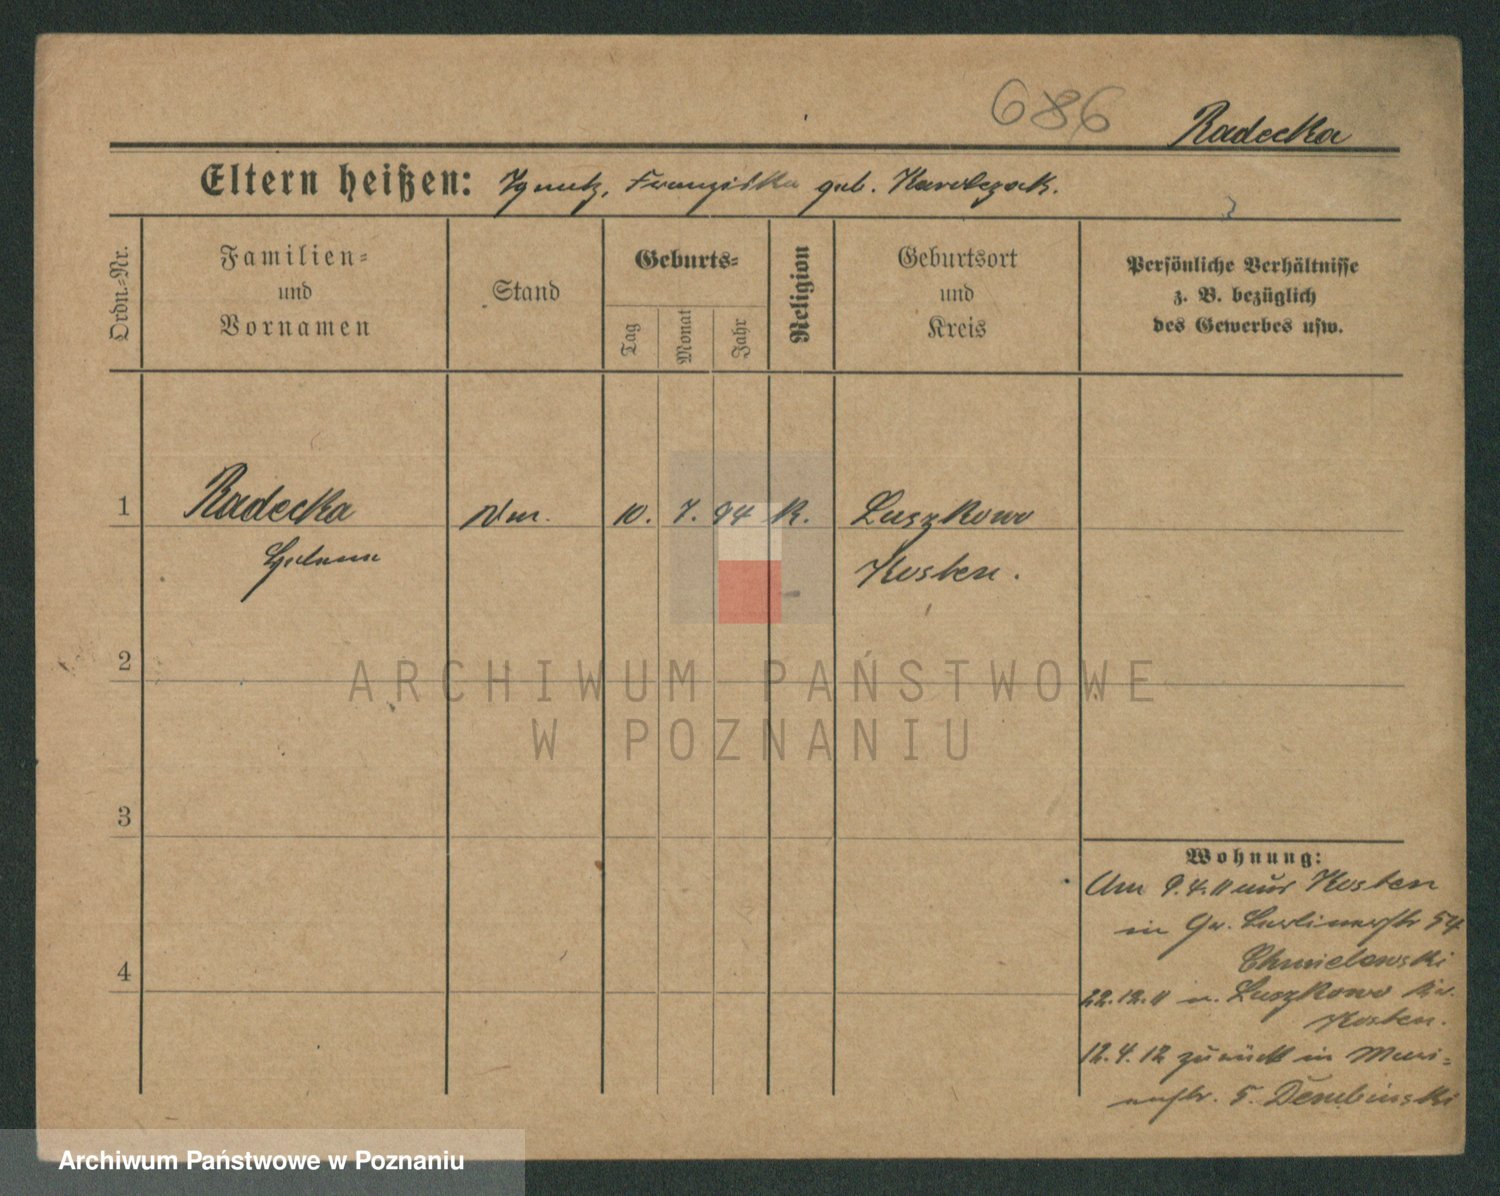 686
Radecka
Eltern heißen: Ignatz, Franziska geb.
Ordn.-Nr.
Familien-
und
Vornamen
Stand
Geburts-
Tag
Monat
Jahr
Religion
Geburtsort
und
Kreis
Persönliche Verhältnisse
z. B. bezüglich
des Gewerbes usw.
1 Radecka 10. 7. 94 K. Luszkowo
Kosten.
2
ARCHIWUM PAŃSTWOWE
W POZNANIU
3
Wohnung:
Am 9.4.11 aus Kosten
in Gr. Berlinerstr 54
Chmielewski
4
22.12.11 n. Luszkowo Kr.
Kosten.
12.4.12 zurück in
5. Dembinski
Archiwum Państwowe w Poznaniu